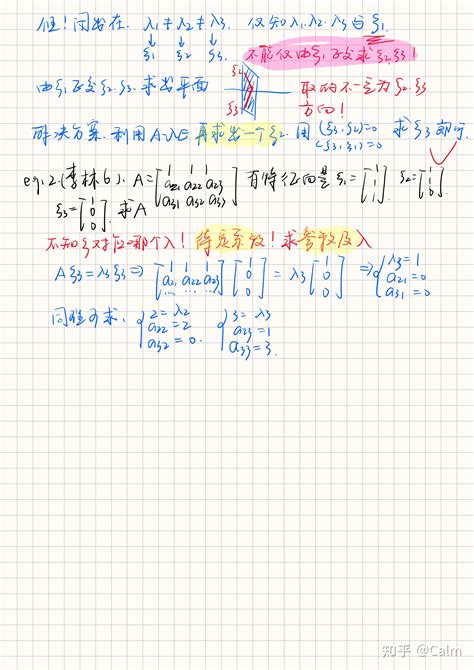 但!问题在. λ₁≠λ₂≠λ₃. 仅知λ₁.λ₂.λ₃与ξ₁.
ξ₁ ξ₂ ξ₃.
不能仅由ξ₁正交求ξ₂.ξ₃!
由ξ₁正交ξ₂.ξ₃.求出平面
ξ₂
ξ₃
取的不一定为ξ₂.ξ₃
方向!
解决方案.利用A-λE再求出一个ξ₂.用{(ξ₃,ξ₂)=0 (ξ₃,ξ₁)=0 求ξ₃即可
eg.2.(李林6). A=[1 1 1; a₂₁ a₂₂ a₂₃; a₃₁ a₃₂ a₃₃] 有特征向量ξ₁=[1 1 1] ξ₂=[1 1 0]
ξ₃=[1 0 0].求A
不知ξ对应哪个λ!待定系数!求参数及λ
Aξ₃=λ₃ξ₃⇒[1 1 1; a₂₁ a₂₂ a₂₃; ...][1 0 0]=λ₃[1 0 0] ⇒{λ₃=1 a₂₁=0 a₃₁=0
同理可求.{2=λ₂ a₂₂=2 a₃₂=0. {3=λ₃ a₂₃=1 a₃₃=3.
知乎 @Calm